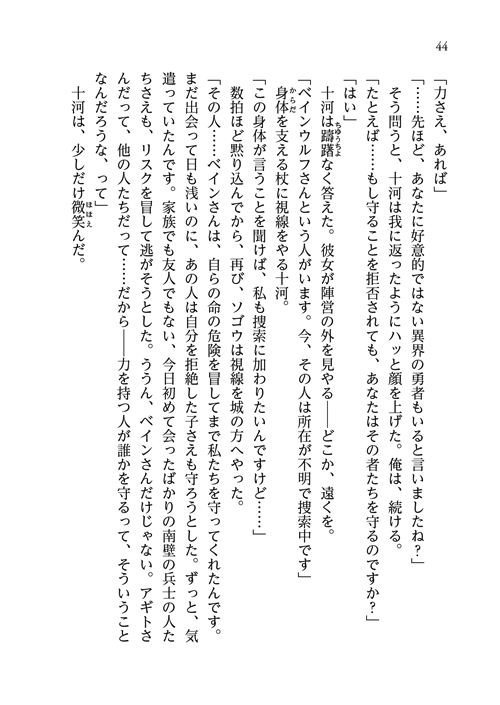 44
「力さえ、あれば」
「……先ほど、あなたに好意的ではない異界の勇者もいると言いましたね？」
そう問うと、十河は我に返ったようにハッと顔を上げた。俺は、続ける。
「たとえば……もし守ることを拒否されても、あなたはその者たちを守るのですか？」
「はい」
十河は躊躇なく答えた。彼女が陣営の外を見やる――どこか、遠くを。
「ベインウルフさんという人がいます。今、その人は所在が不明で捜索中です」
身体を支える杖に視線をやる十河。
「この身体が言うことを聞けば、私も捜索に加わりたいんですけど……」
数拍ほど黙り込んでから、再び、ソゴウは視線を城の方へやった。
「その人……ベインさんは、自らの命の危険を冒してまで私たちを守ってくれたんです。
まだ出会って日も浅いのに、あの人は自分を拒絶した子さえも守ろうとした。ずっと、気
遣っていたんです。家族でも友人でもない、今日初めて会ったばかりの南壁の兵士の人た
ちさえも、リスクを冒して逃がそうとした。ううん、ベインさんだけじゃない。アギトさ
んだって、他の人たちだって……だから――力を持つ人が誰かを守るって、そういうこと
なんだろうな、って」
十河は、少しだけ微笑んだ。